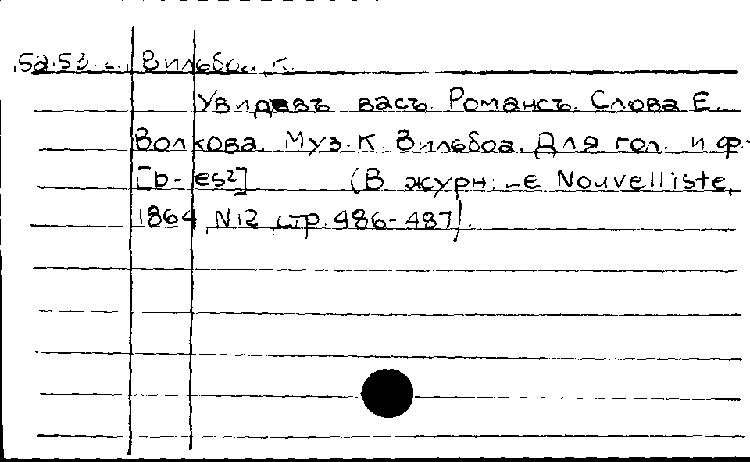 52.53 Вильбоа К.
Увидавъ васъ. Романсъ. Слова Е.
Волкова. Муз. К Вильбоа. Для гол. и ф-
[b-es²] (В журн: Le Nouvelliste,
1864, N12 стр. 486-487).